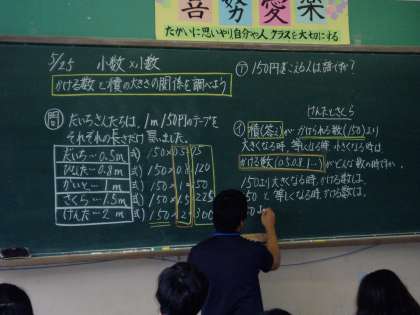 喜努愛楽
たがいに思いやり自分や人クラスを大切にする
5/25 小数×小数
かける数と積の大きさの関係を調べよう
問 だいちさんたちは、1m150円のテープを
それぞれの長さだけ買いました。
だいち…0.5m 式)150×0.5 75
ひなた…0.8m 式)150×0.8 120
かいと…1m 式)150×1 150
さくら…1.5m 式)150×1.5 225
けんた…2m 式)150×2 300
㋐150円をこえる人は誰ですか?
けんたとさくら
積(答え)がかけられる数(150)より
大きくなる時、等しくなる時、小さくなる時は
かける数(0.5 0.8 1…)がどんな数の時ですか。
150より大きくなる時、かける数は、
150と等しくなる時、かける数は、
150より